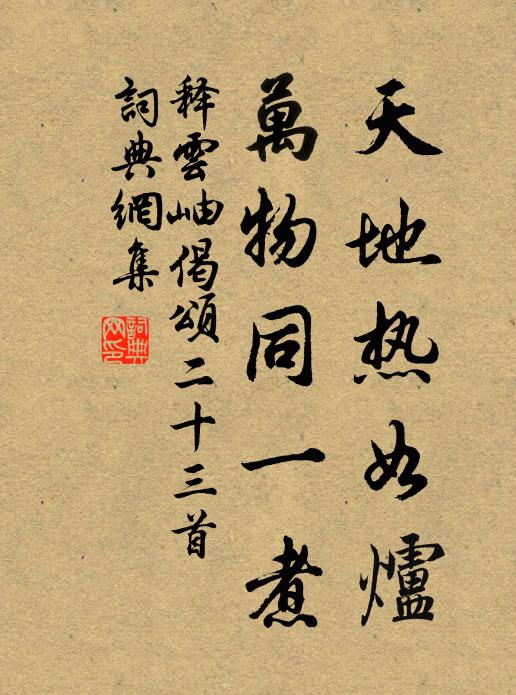 天地热如爐
萬物同一煮
释雲岫偈頌二十三首
詞典網集
詞典网印